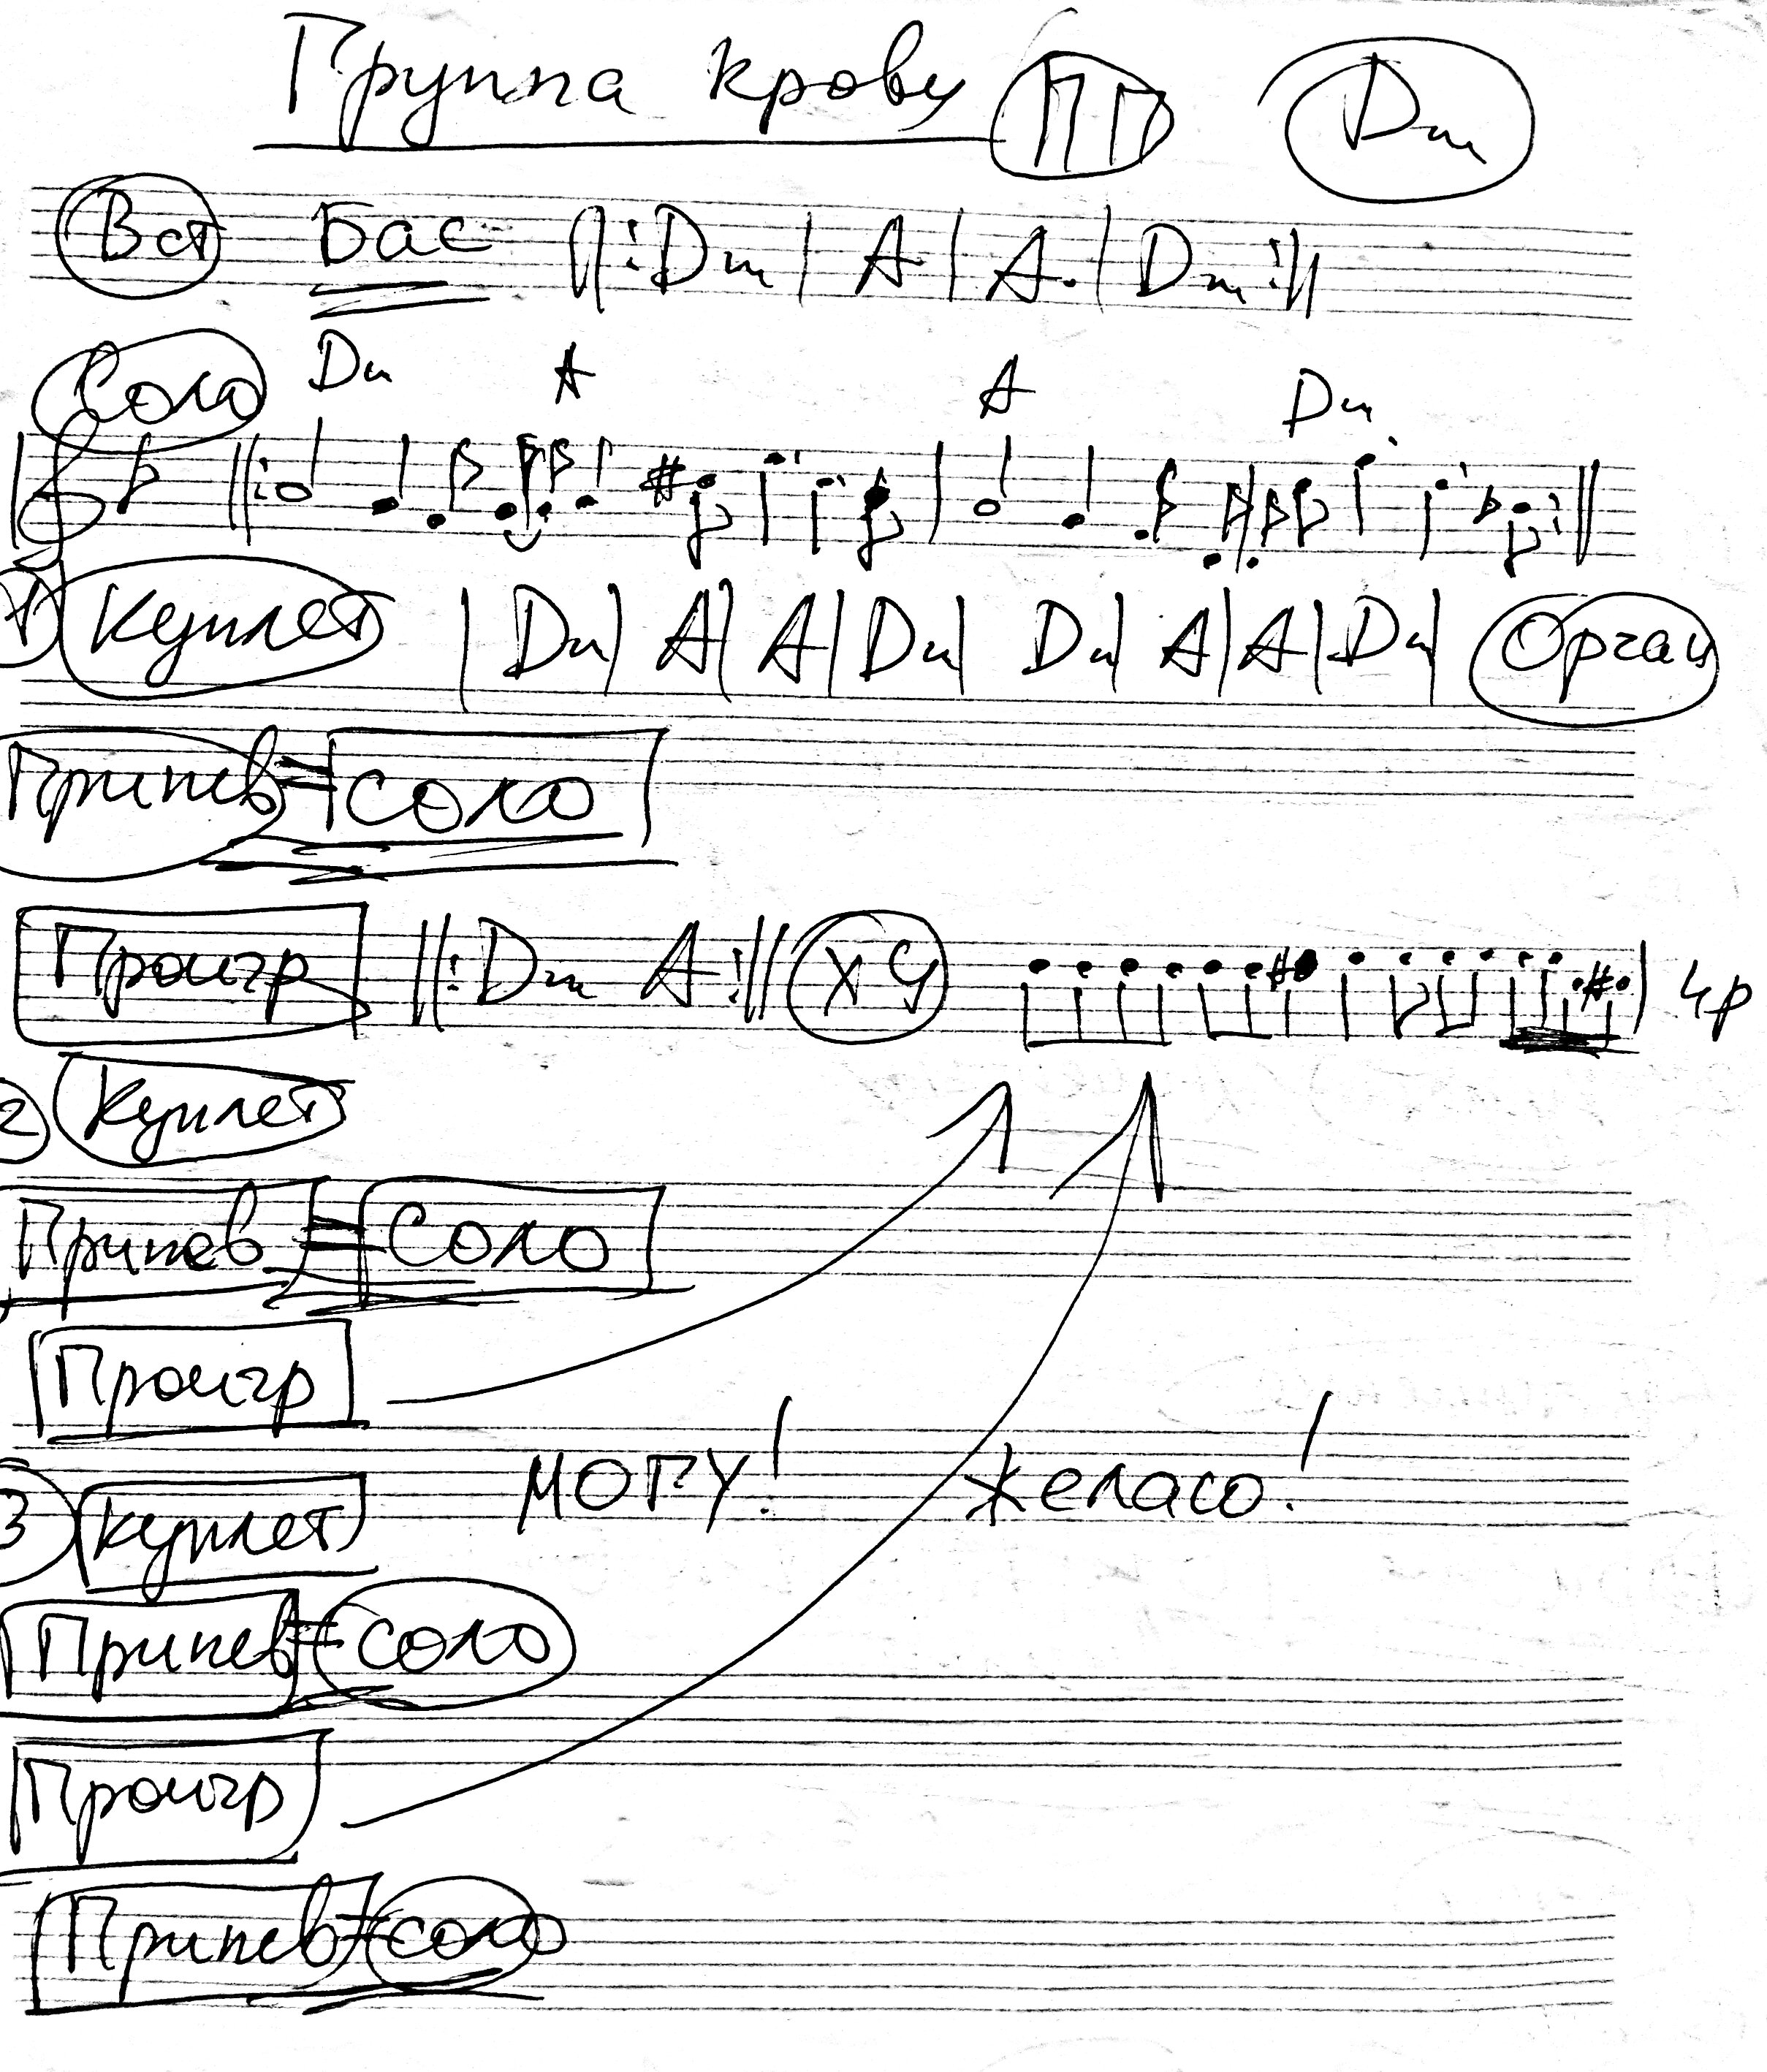 Группа крови ПП Dm
Вст Бас ||: Dm | A | A. | Dm :||
Соло Dm A A Dm
1) Куплет | Dm | A | A | Dm | Dm | A | A | Dm | Орган
Припев = соло
Проигр ||: Dm A :|| х4 4р
2 Куплет
Припев = Соло
Проигр
3 куплет могу! желаю!
Припев = соло
Проигр
Припев = соло